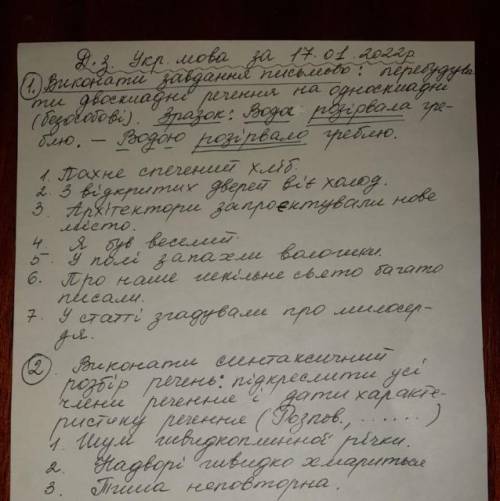 Д.з. Укр. мова за 17.01.2022р
1. Виконати завдання письмово: перебудува
ти двоскладні речення на односкладні
(безособові). Зразок: Вода розірвала гре-
блю. – Водою розірвало греблю.
1. Пахне спечений хліб.
2. З відкритих дверей віє холод.
3. Архітектори запроєктували нове
місто.
4. Я був веселий.
5. У полі запахли волошки.
6. Про наше шкільне свято багато
писали.
7. У статті згадували про милосер-
дя.
2. Виконати синтаксичний
розбір речень: підкреслити усі
члени речення і дати характе-
ристику речення (Розпов., ......)
1. Шум швидкоплинної річки.
2. Надворі швидко хмариться
3. Тиша неповторна.